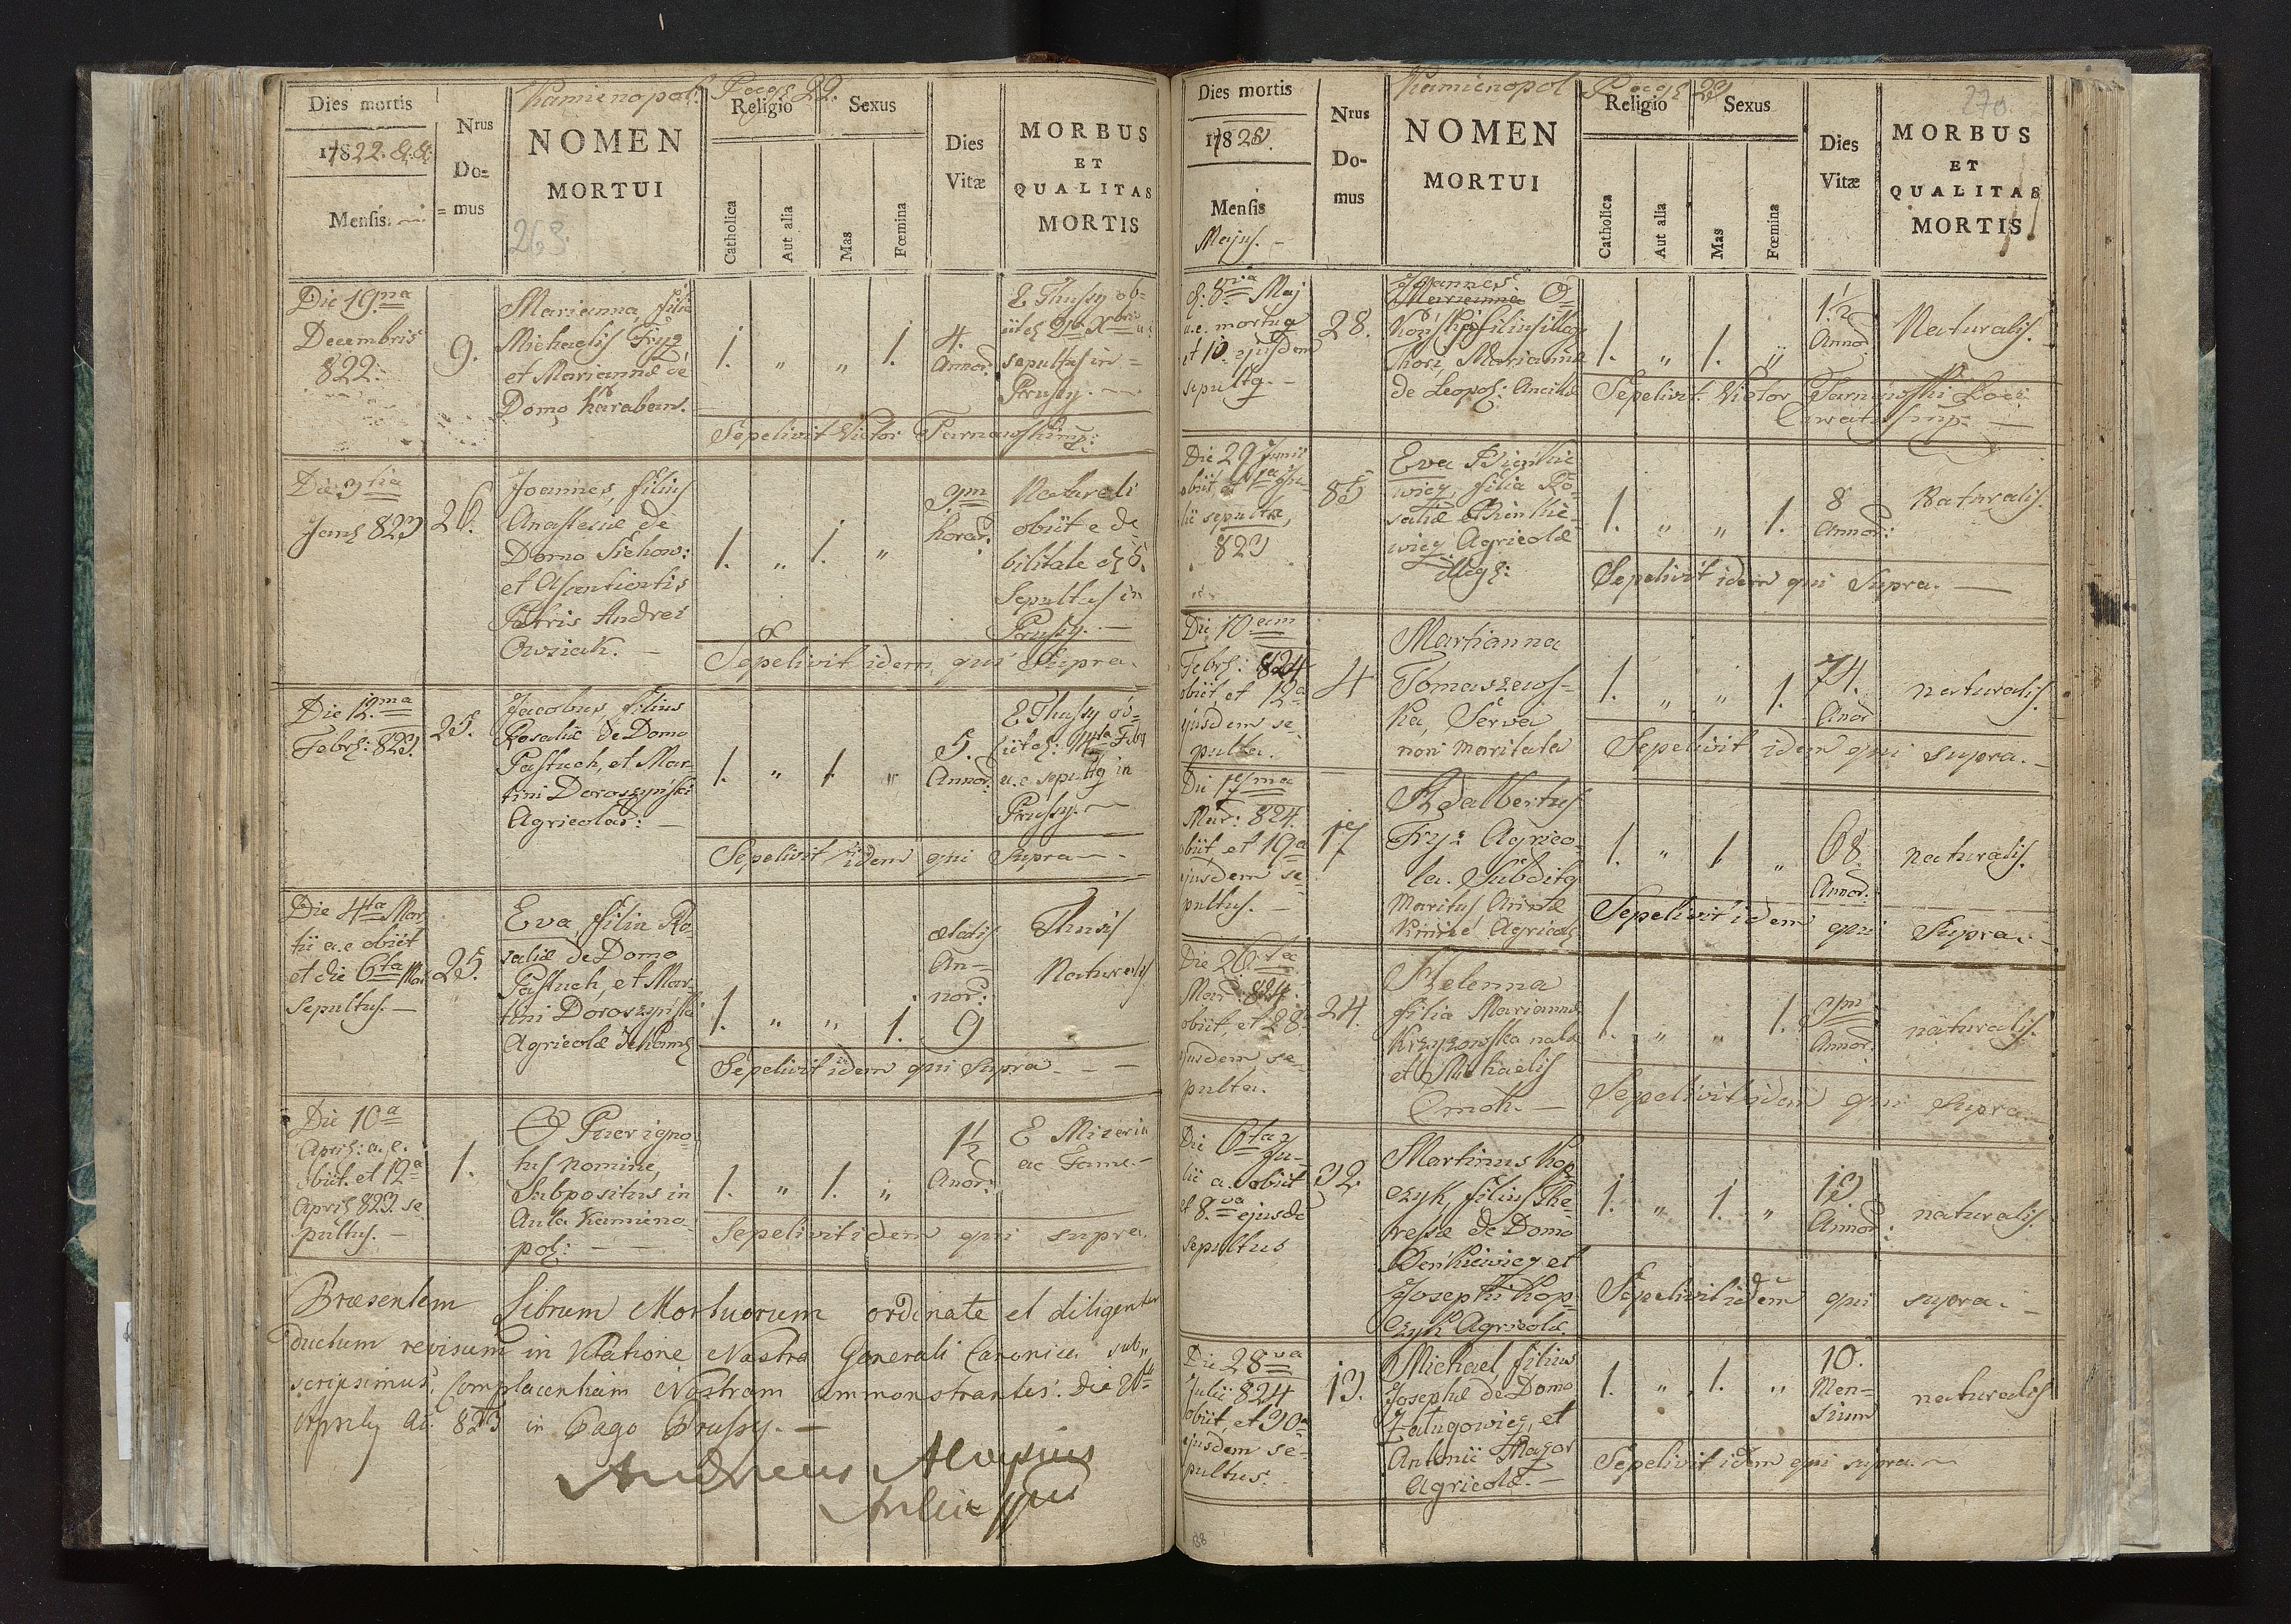 Kamienopol. Pag 22.
Dies mortis
1822. &.&.
Mensis.
Nrus
Do=
= mus
NOMEN
MORTUI
263.
Religio
Catholica
Aut alia
Sexus
Mas
Fœmina
Dies
Vitæ
MORBUS
ET
QUALITAS
MORTIS
Die 19na
Decembris
822.
9.
Marianna, filia
Michaelis Fryz
et Mariannæ de
Domo Karaban.
1. " " 1.
4.
Annor:
E Thussy ob=
iit
sepultus in =
Prussy.
Sepelivit Victor Tarnawski mp:
Die 3tia
Janz 823
26.
Joannes, filius
Anastasiæ de
Domo Sichow:
et Asentientis
Patris Andrei
Owsiak. —
1. " 1. "
9m
horar:
Naturali
obiit e de
bilitate
Sepultus in
Prussy. —
Sepelivit idem qui Supra.
Die 12.ma
Febrz: 823.
25.
Jacobus, filius
Rosaliæ de Domo
Pastuch, et Mar-
tini Doroszyński
Agricolar: —
1. " 1. "
5.
Annor:
E Thussy ob=
iit 14ta Febr
a.c. sepultg in
Prussy.
Sepelivit idem qui Supra —
Die 4ta Mar
tii a.c obiit
et die 6ta Mar
Sepultus. —
25.
Eva, filia Ro-
saliæ de Domo
Pastuch, et Mar-
tini Doroszyński
Agricolæ
1. " " 1.
ætatis
An-
nor:
9
Thusis
Naturalis
Sepelivit idem qui Supra — —
Die 10a
Aprz: a.c.
obiit. et 12a
Aprz 823. se
pultus. —
1.
Puer igno-
tus Nomine,
Subpositus in
Aula Kamieno-
polz: — —
1. " 1. "
1½
Anor:
E Mizeria
ac Fame. —
Sepelivit idem qui supra.
Præsentem Librum Mortuorum ordinate et diligenter
ductum revisum in Visitatione Nostra Generali Canonica sub„
scripsimus, Complacentiam Nostram commonstrantes. Die 26ta
Aprilis Ao: 823 in Pago Prussy. —
Andreas Aloysius
Dies mortis
1823.
Mensis
Majus. —
Nrus
Do-
mus
Kamienopol Pag 23
NOMEN
MORTUI
Religio
Catholica
Aut alia
Sexus
Mas
Fœmina
Dies
Vitæ
270.
MORBUS
ET
QUALITAS
MORTIS
d. 8va Maj
a.c. mortug
et 10. ejusdem
sepultg. —
28.
Joannes.
Marianna O-
filius illeg
Thori Marianna
de Leopolz: Ancilla
1. " 1. "
1½
Annor:
Naturalis.
Sepelivit Victor Tarnawski Loci
Curatus mp. —
Die 29 Junii
obiit, et 1a Ju-
lii sepulta,
823
85
Eva Bieńkie
wicz, filia Ro-
saliæ Bieńkie-
wicz Agricolæ
illegz:
1. " " 1.
8
Annor:
Naturalis.
Sepelivit idem qui Supra. —
Die 10am
Febrz: 824
obiit, et 12a
ejusdem se-
pulta.
4
Martianna
Tomaszews-
ka, Serva
non maritata
1. " " 1.
74.
Anor
naturalis.
Sepelivit idem qui supra. —
Die 17ma
Mar: 824.
obiit, et 19a
ejusdem se-
pultus. —
17
Adalbertus
Fryz Agrico-
la. Subditg
Maritus Annæ
Agricolz
1. " 1. "
68.
Annor:
naturalis.
Sepelivit idem qui Supra. —
Die 26ta
Mar: 824.
obiit, et 28a
ejusdem se-
pulta.
24.
Helenna
filia Mariannæ
Krzyzowska nata
et Michaelis
Cmoh. —
1. " " 1.
Annor:
naturalis.
Sepelivit idem qui Supra
Die 6ta Ju-
lii a. obiit
et 8.va ejusde
sepultus
32.
Martinus Kop
czyk, filius The-
resiæ de Domo
Bieńkiewicz et
Josephi Kop-
czyk Agricolæ.
1. " 1. "
13
Annor:
naturalis.
Sepelivit idem qui supra. —
Die 28va
Julii 824
obiit, et 30a
ejusdem se-
pultus.
13.
Michael filius
Josephæ de Domo
Załugowicz, et
Antonii Magor
Agricolæ. —
1. " 1. "
10.
Men-
sium
naturalis
Sepelivit idem qui supra. —
88